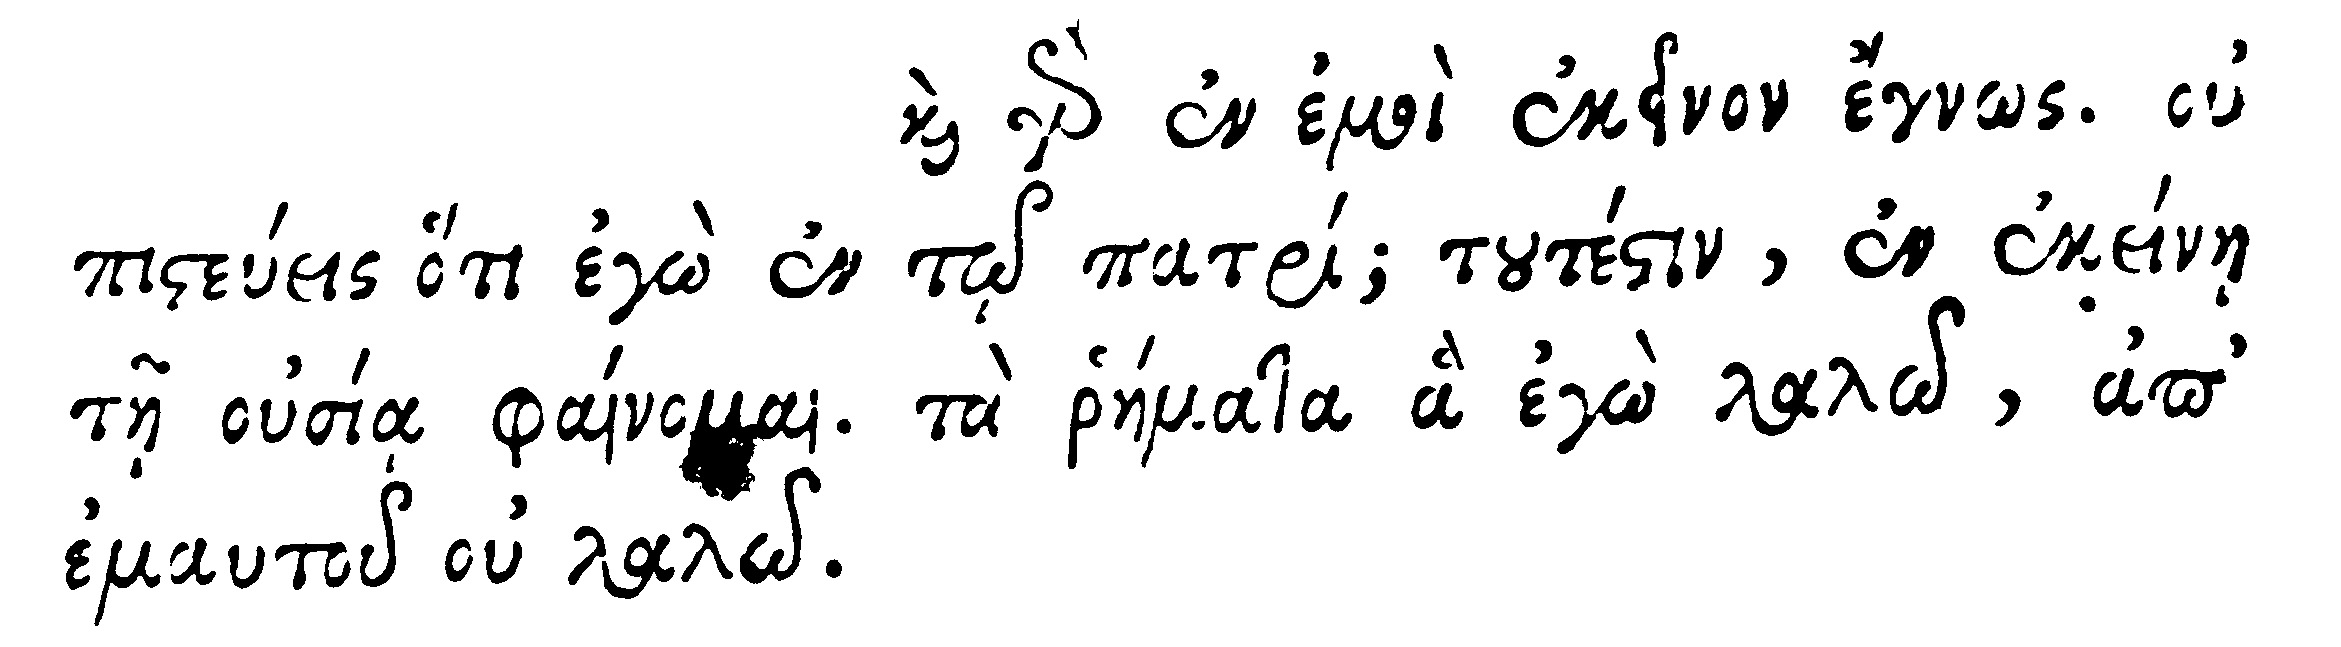 καὶ γὰρ ἐν ἐμοὶ ἐκεῖνον ἔγνως. οὐ
πιστεύεις ὅτι ἐγὼ ἐν τῷ πατρί; τουτέστιν, ἐν ἐκείνῃ
τῇ οὐσίᾳ φαίνομαι. τὰ ῥήματα ἃ ἐγὼ λαλῶ, ἀπ’
ἐμαυτοῦ οὐ λαλῶ.